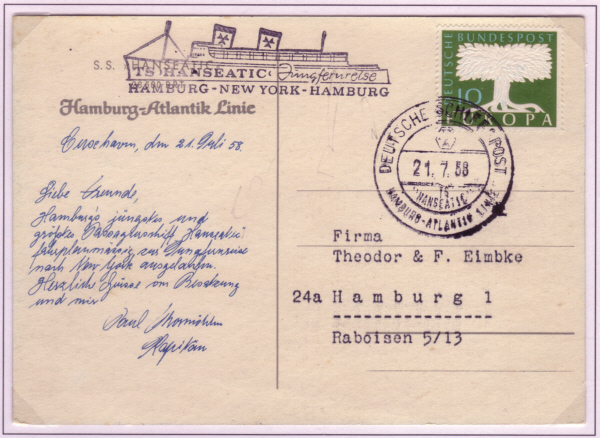 S.S. HANSEATIC
TS HANSEATIC Jungfernreise
HAMBURG-NEW YORK-HAMBURG
Hamburg-Atlantik Linie
DEUTSCHE BUNDESPOST
10
EUROPA
DEUTSCHE SCHIFFSPOST
21. 7. 58
"HANSEATIC"
HAMBURG-ATLANTIK LINIE
den 21. Juli 58.
Liebe Freunde,
Hamburgs jüngstes und
größtes Passagierschiff "Hanseatic"
fahrplanmässig zur Jungfernreise
nach New York ausgelaufen.
Herzliche Grüsse von Besatzung
und mir
Kapitän
Firma
Theodor & F. Eimbke
24a Hamburg 1
Raboisen 5/13